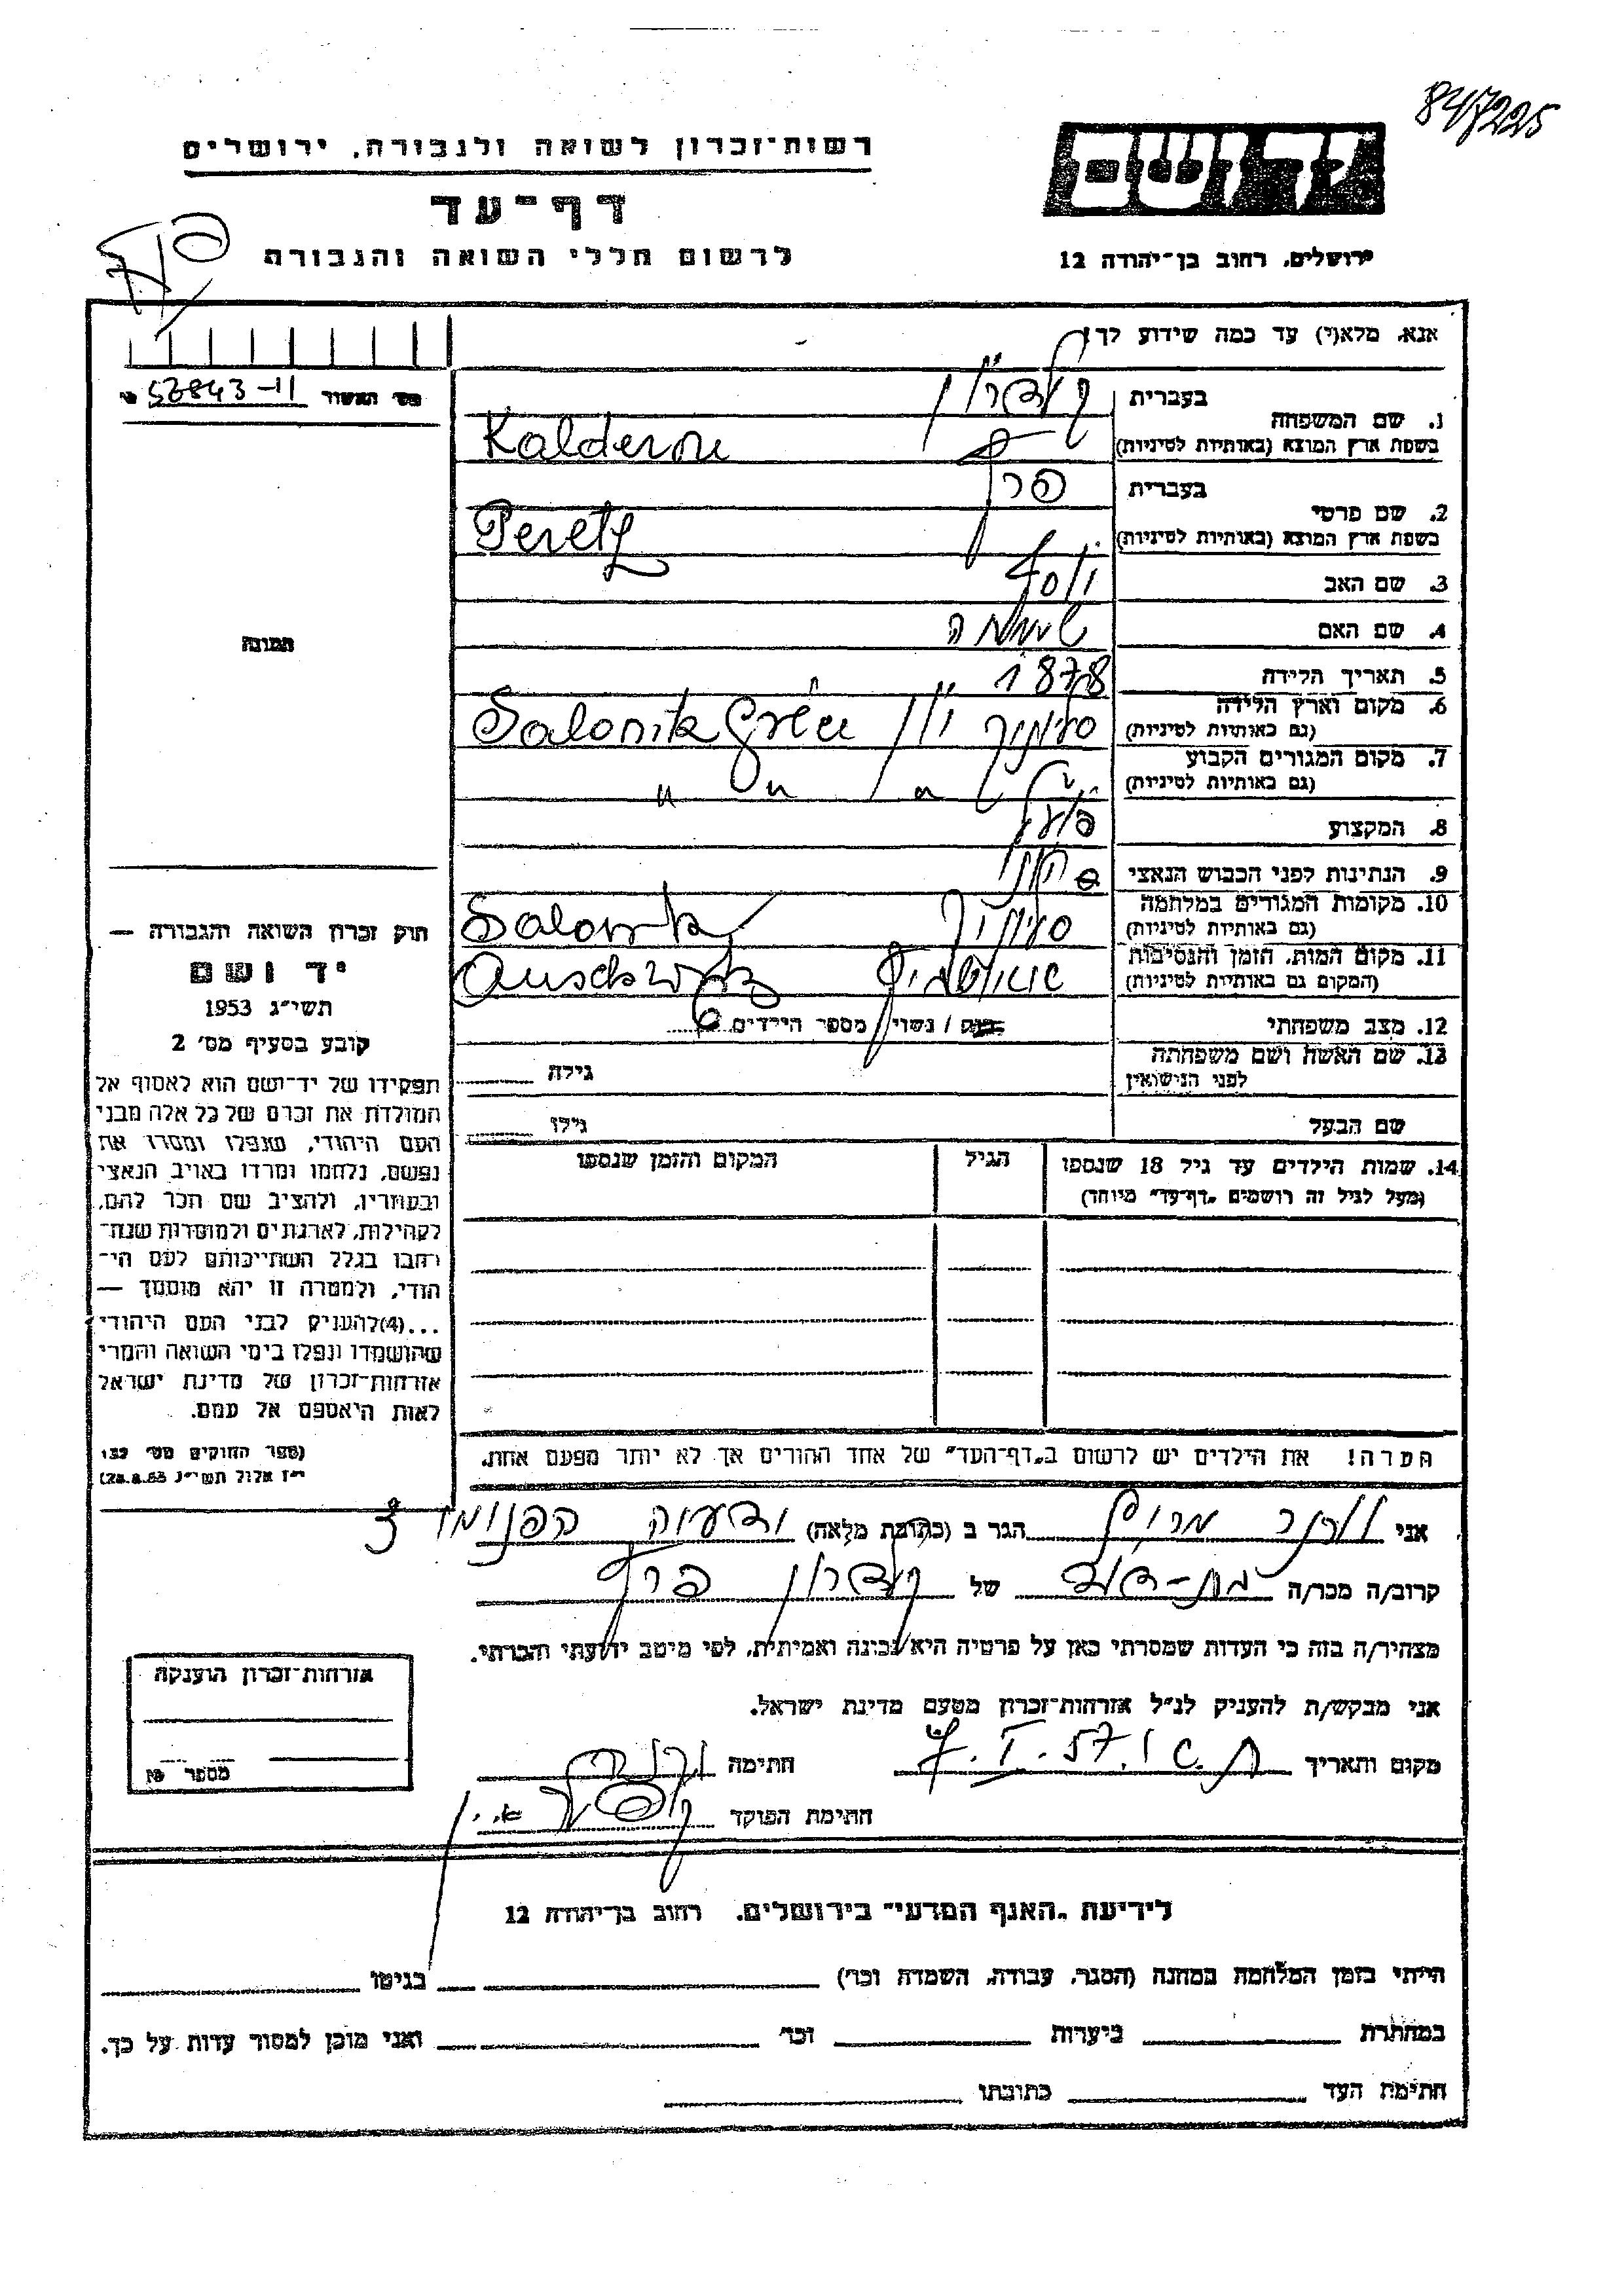 847225
יד ושם
רשות־זכרון לשואה ולגבורה, ירושלים
דף־עד
לרשום חללי השואה והגבורה
ירושלים, רחוב בן־יהודה 12
אנא, מלא(י) עד כמה שידוע לך!
מס׳ האשור 52843-11
1. שם המשפחה
בעברית קלדרון
בשפת ארץ המוצא (באותיות לטיניות) Kalderon
2. שם פרטי
בעברית פרץ
בשפת ארץ המוצא (באותיות לטיניות) Peretz
3. שם האב יוסף
4. שם האם
5. תאריך הלידה 1878
6. מקום וארץ הלידה
(גם באותיות לטיניות) סלוניק יון Salonik Grèce
7. מקום המגורים הקבוע
(גם באותיות לטיניות) " " "
8. המקצוע פועל
9. הנתינות לפני הכבוש הנאצי יוני
10. מקומות המגורים במלחמה
(גם באותיות לטיניות) סלוניק Salonik
11. מקום המות, הזמן והנסיבות
(המקום גם באותיות לטיניות) Auschwitz
12. מצב משפחתי נשוי / מספר הילדים
13. שם האשה ושם משפחתה
לפני הנישואין גילה
שם הבעל גילו
14. שמות הילדים עד גיל 18 שנספו הגיל המקום והזמן שנספו
(מעל לגיל זה רושמים „דף־עד״ מיוחד)
הערה! את הילדים יש לרשום ב„דף־העד״ של אחד ההורים אך לא יותר מפעם אחת.
תמונה
חוק זכרון השואה והגבורה —
יד ושם
תשי״ג 1953
קובע בסעיף מס׳ 2
תפקידו של יד־ושם הוא לאסוף אל
המולדת את זכרם של כל אלה מבני
העם היהודי, שנפלו ומסרו את
נפשם, נלחמו ומרדו באויב הנאצי
ובעוזריו, ולהציב שם וזכר להם,
לקהילות, לארגונים ולמוסדות שנח־
רבו בגלל השתייכותם לעם הי־
הודי, ולמטרה זו יהא מוסמך —
...(4)להעניק לבני העם היהודי
שהושמדו ונפלו בימי השואה והמרי
אזרחות־זכרון של מדינת ישראל
לאות היאספם אל עמם.
(ספר החוקים מס׳ 132
י״ז אלול תשי״ג 28.8.53)
אני הגר ב (כתובת מלאה)
קרוב/ה מכר/ה של קלדרון פרץ
מצהיר/ה בזה כי העדות שמסרתי כאן על פרטיה היא נכונה ואמיתית, לפי מיטב ידיעתי והכרתי.
אני מבקש/ת להעניק לנ״ל אזרחות־זכרון מטעם מדינת ישראל.
מקום ותאריך 7.I.57 חתימה
חתימת הפוקד
אזרחות־זכרון הוענקה
מספר
לידיעת „האגף המדעי״ בירושלים, רחוב בן־יהודה 12
הייתי בזמן המלחמה במחנה (הסגר, עבודה, השמדה וכו׳) בגיטו
במחתרת ביערות וכו׳ ואני מוכן למסור עדות על כך.
חתימת העד כתובתו